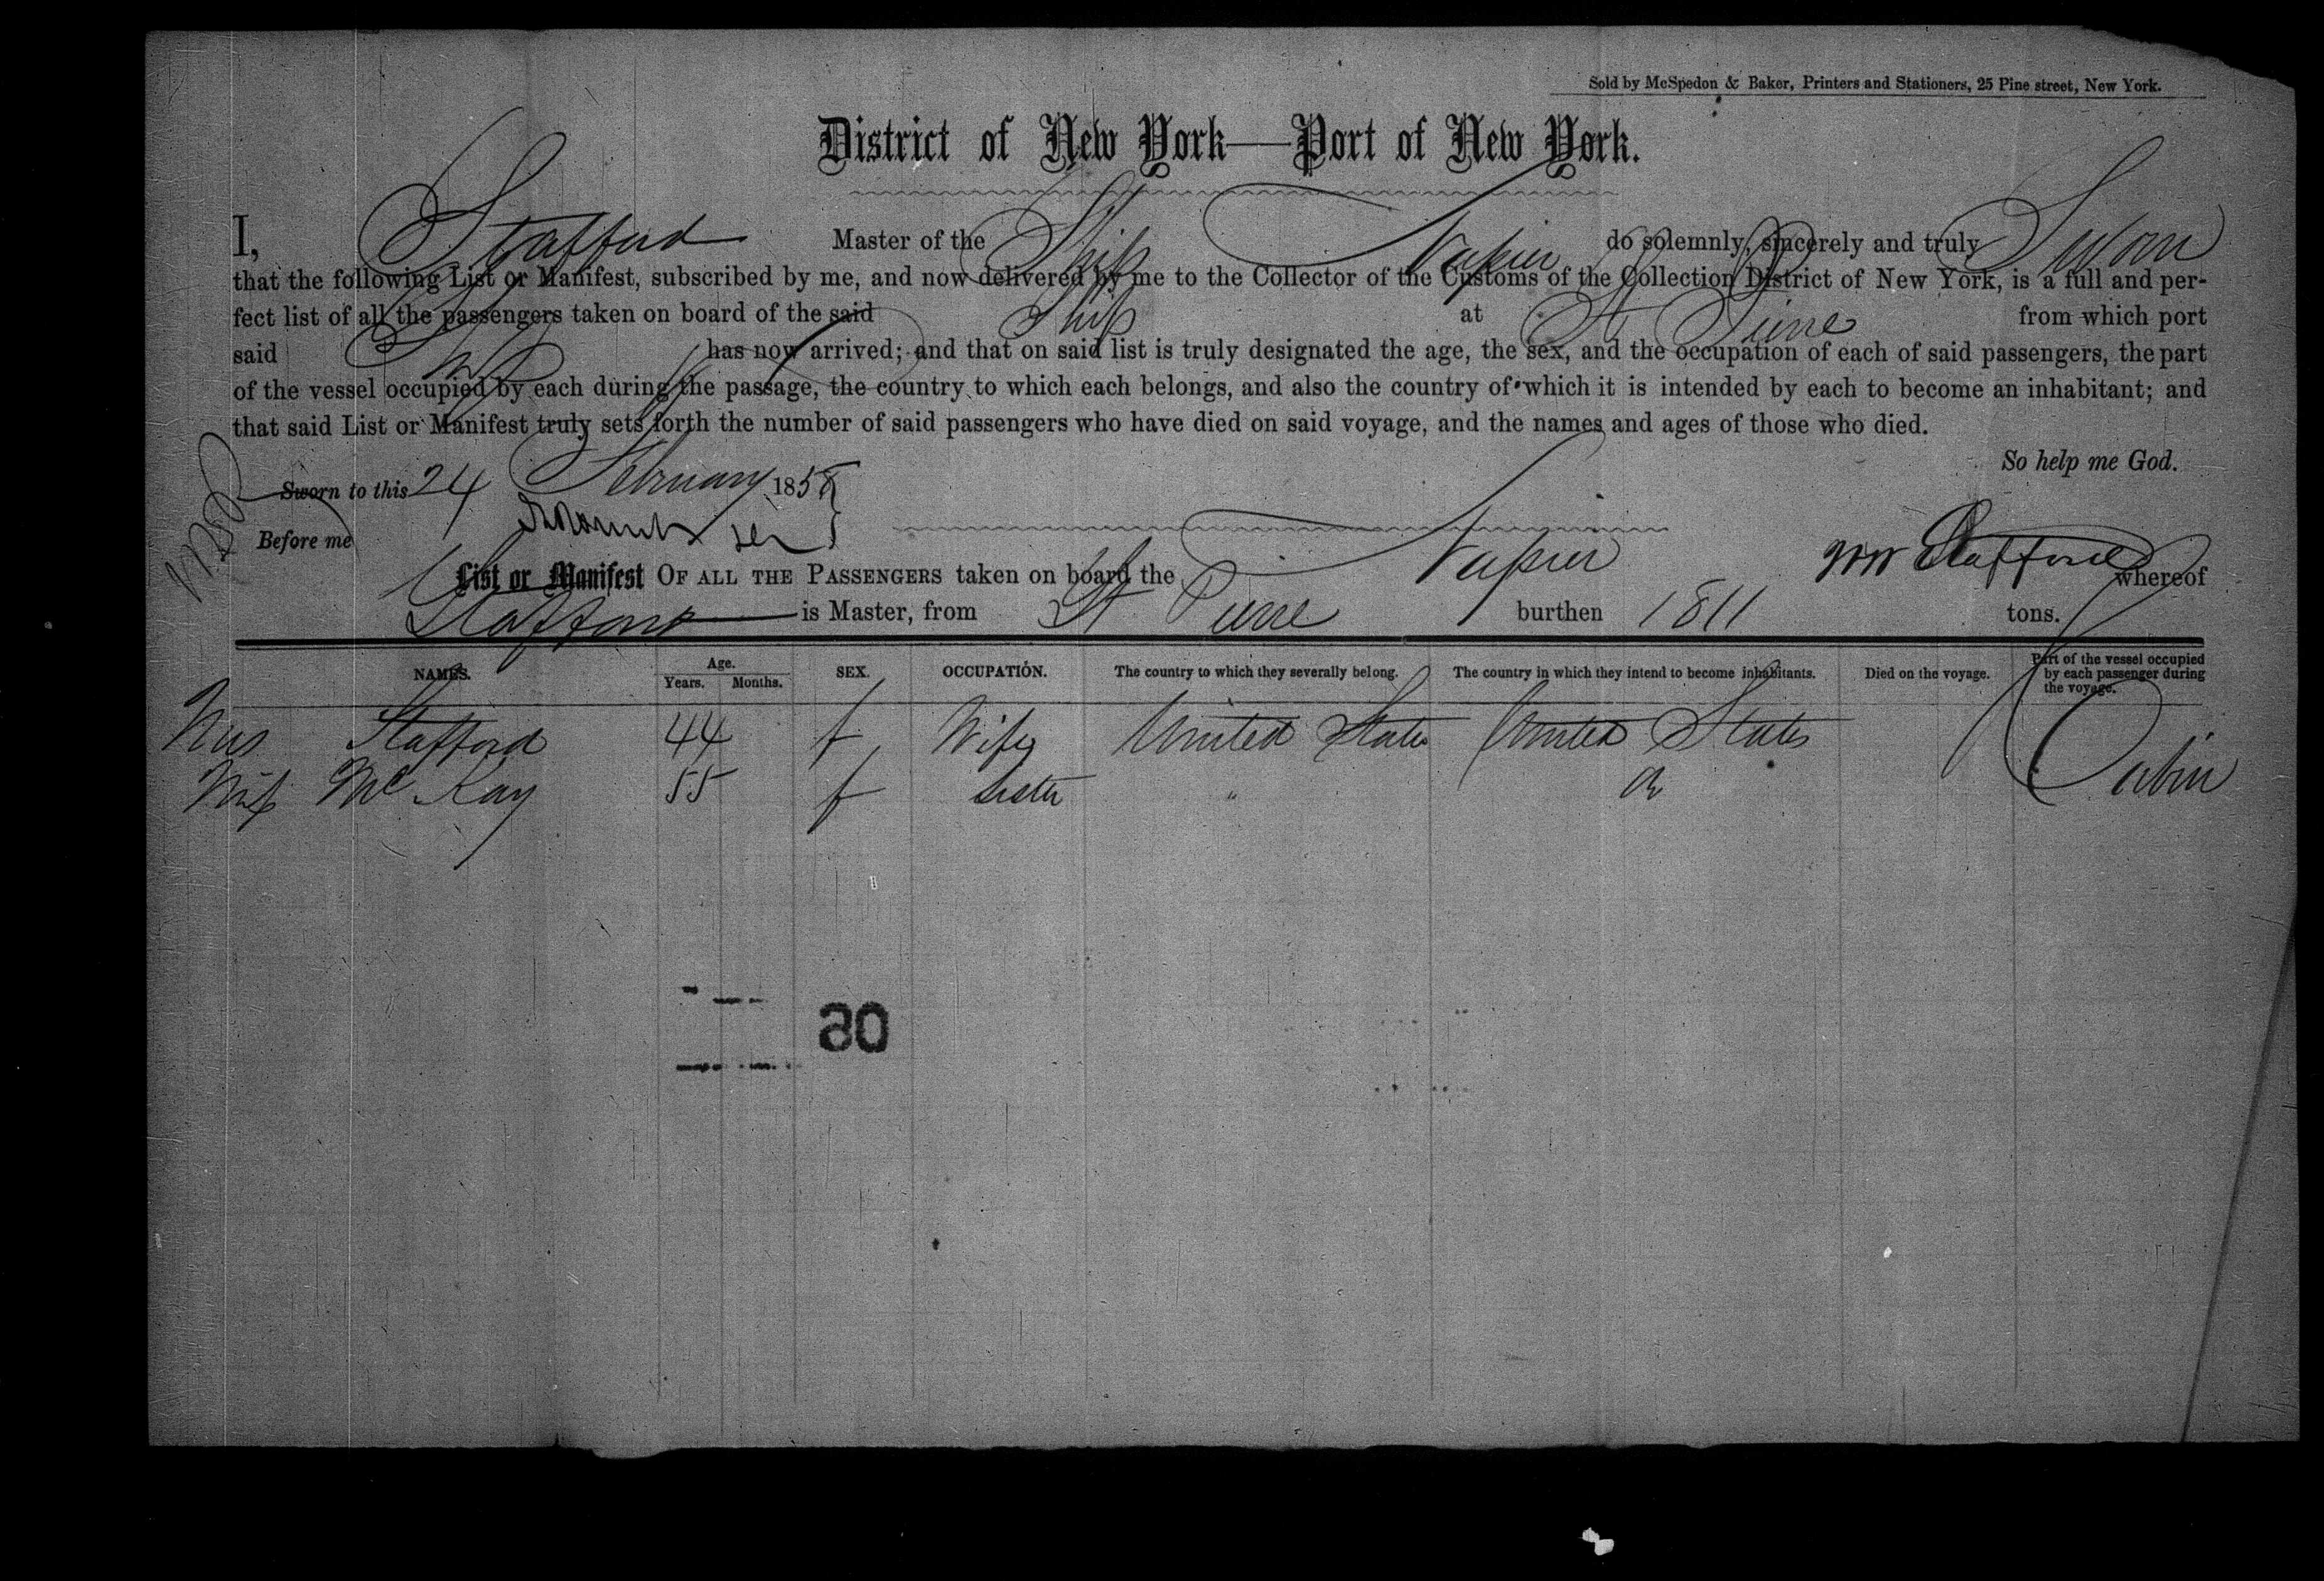 Sold by McSpedon & Baker, Printers and Stationers, 25 Pine street, New York.
District of New York—Port of New York.
I, Stafford Master of the Ship Napier do solemnly, sincerely and truly Swear
that the following List or Manifest, subscribed by me, and now delivered by me to the Collector of the Customs of the Collection District of New York, is a full and per-
fect list of all the passengers taken on board of the said Ship at St Pierre from which port
said Ship has now arrived; and that on said list is truly designated the age, the sex, and the occupation of each of said passengers, the part
of the vessel occupied by each during the passage, the country to which each belongs, and also the country of which it is intended by each to become an inhabitant; and
that said List or Manifest truly sets forth the number of said passengers who have died on said voyage, and the names and ages of those who died.
So help me God.
Sworn to this 24 February 1858
Before me
Wm Stafford
List or Manifest OF ALL THE PASSENGERS taken on board the Ship Napier whereof
Stafford is Master, from St Pierre burthen 1811 tons.
NAMES. Age. Years. Months. SEX. OCCUPATION. The country to which they severally belong. The country in which they intend to become inhabitants. Died on the voyage. Part of the vessel occupied by each passenger during the voyage.
Mrs Stafford 44 f Wife United States United States Cabin
Miss McKay 55 f Sister " Do
50